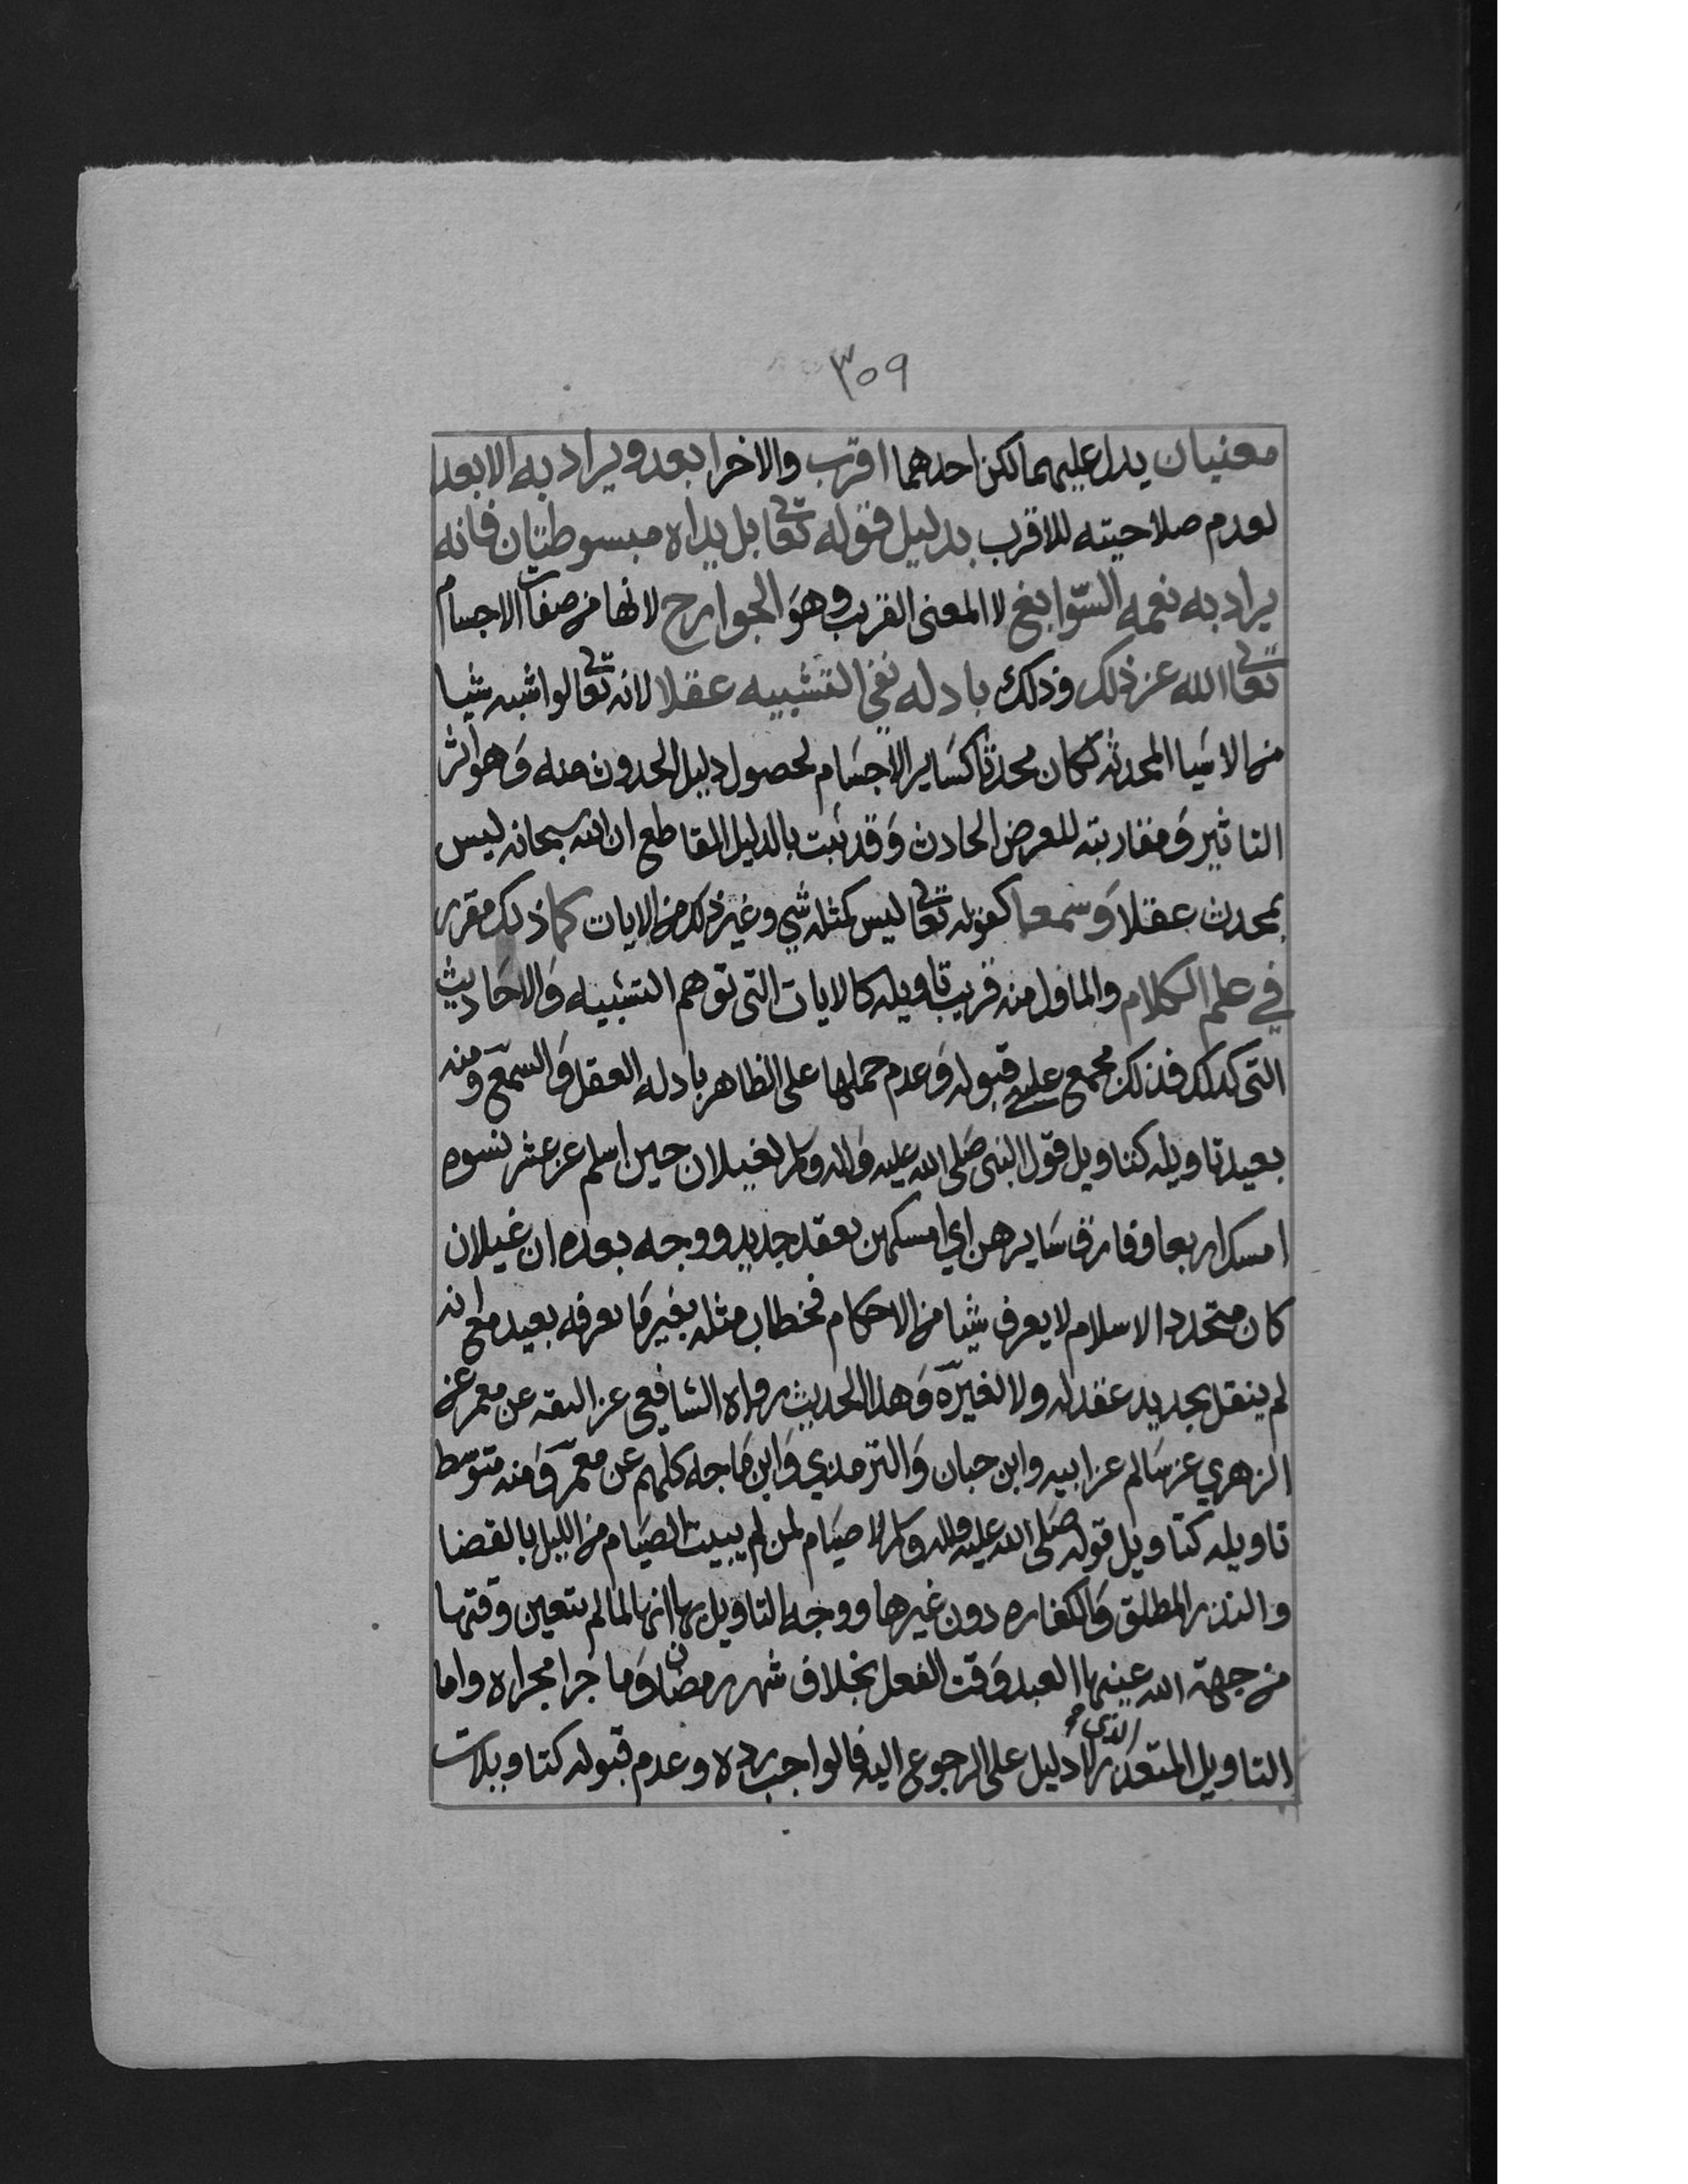 ٣٥٩
معنيان يدل عليهما لكن احدهما اقرب والاخر ابعد ويراد به الابعد
لعدم صلاحيته للاقرب بدليل فقوله تعا بل يداه مبسوطتان فانه
يراد به نعمه السّوابغ لا المعنى القريب وهو الجوارح لانها من صفات الاجسام
تعا الله عن ذلك وذلك بادله نفي التشبيه عقلا لانه تعا لو اشبه شيا
من الاشيا المحدثه لكان محدثا كساير الاجسام لحصول دليل الحدوث منه وهو اثر
التاثير ومقاربته للعرض الحادث وقد ثبت بالدليل القاطع ان الله سبحانه ليس
بمحدث عقلا وسمعا كقوله تعا ليس كمثله شي وغير ذلك من الايات كما ذلك مقرر
في علم الكلام والماول منه قريب تاويله كالايات التي توهم التشبيه والاحاديث
التي كذلك فذلك مجمع على قبوله وعدم حملها على الظاهر بادله العقل والسمع ومنه
بعيد تاويله كتاويل قول النبي صلى الله عليه واله وسلم لغيلان حين اسلم عن عشر نسوه
امسك اربعا وفارق سايرهن اي امسكهن بعقد جديد ووجه بعده ان غيلان
كان متجدد الاسلام لا يعرف شيا من الاحكام فخطاب مثله بغير ما يعرفه بعيد مع انه
لم ينقل تجديد عقد له ولا لغيره وهذا الحديث رواه الشافعي عن الثقه عن معمر عن
الزهري عن سالم عن ابيه وابن حبان والترمذي وابن ماجه كلهم عن معمر ومنه متوسط
تاويله كتاويل قوله صلى الله عليه واله وسلم لا صيام لمن لم يبيت الصيام من الليل بالقضا
والنذر المطلق والكفاره دون غيرها ووجه التاويل بها انها لما لم يتعين وقتها
من جهة الله عينها العبد وقت الفعل بخلاف شهر رمضان وما جرا مجراه واما
التاويل المتعذر الذي لا دليل على الرجوع اليه فالواجب رده وعدم قبوله كتاويلات